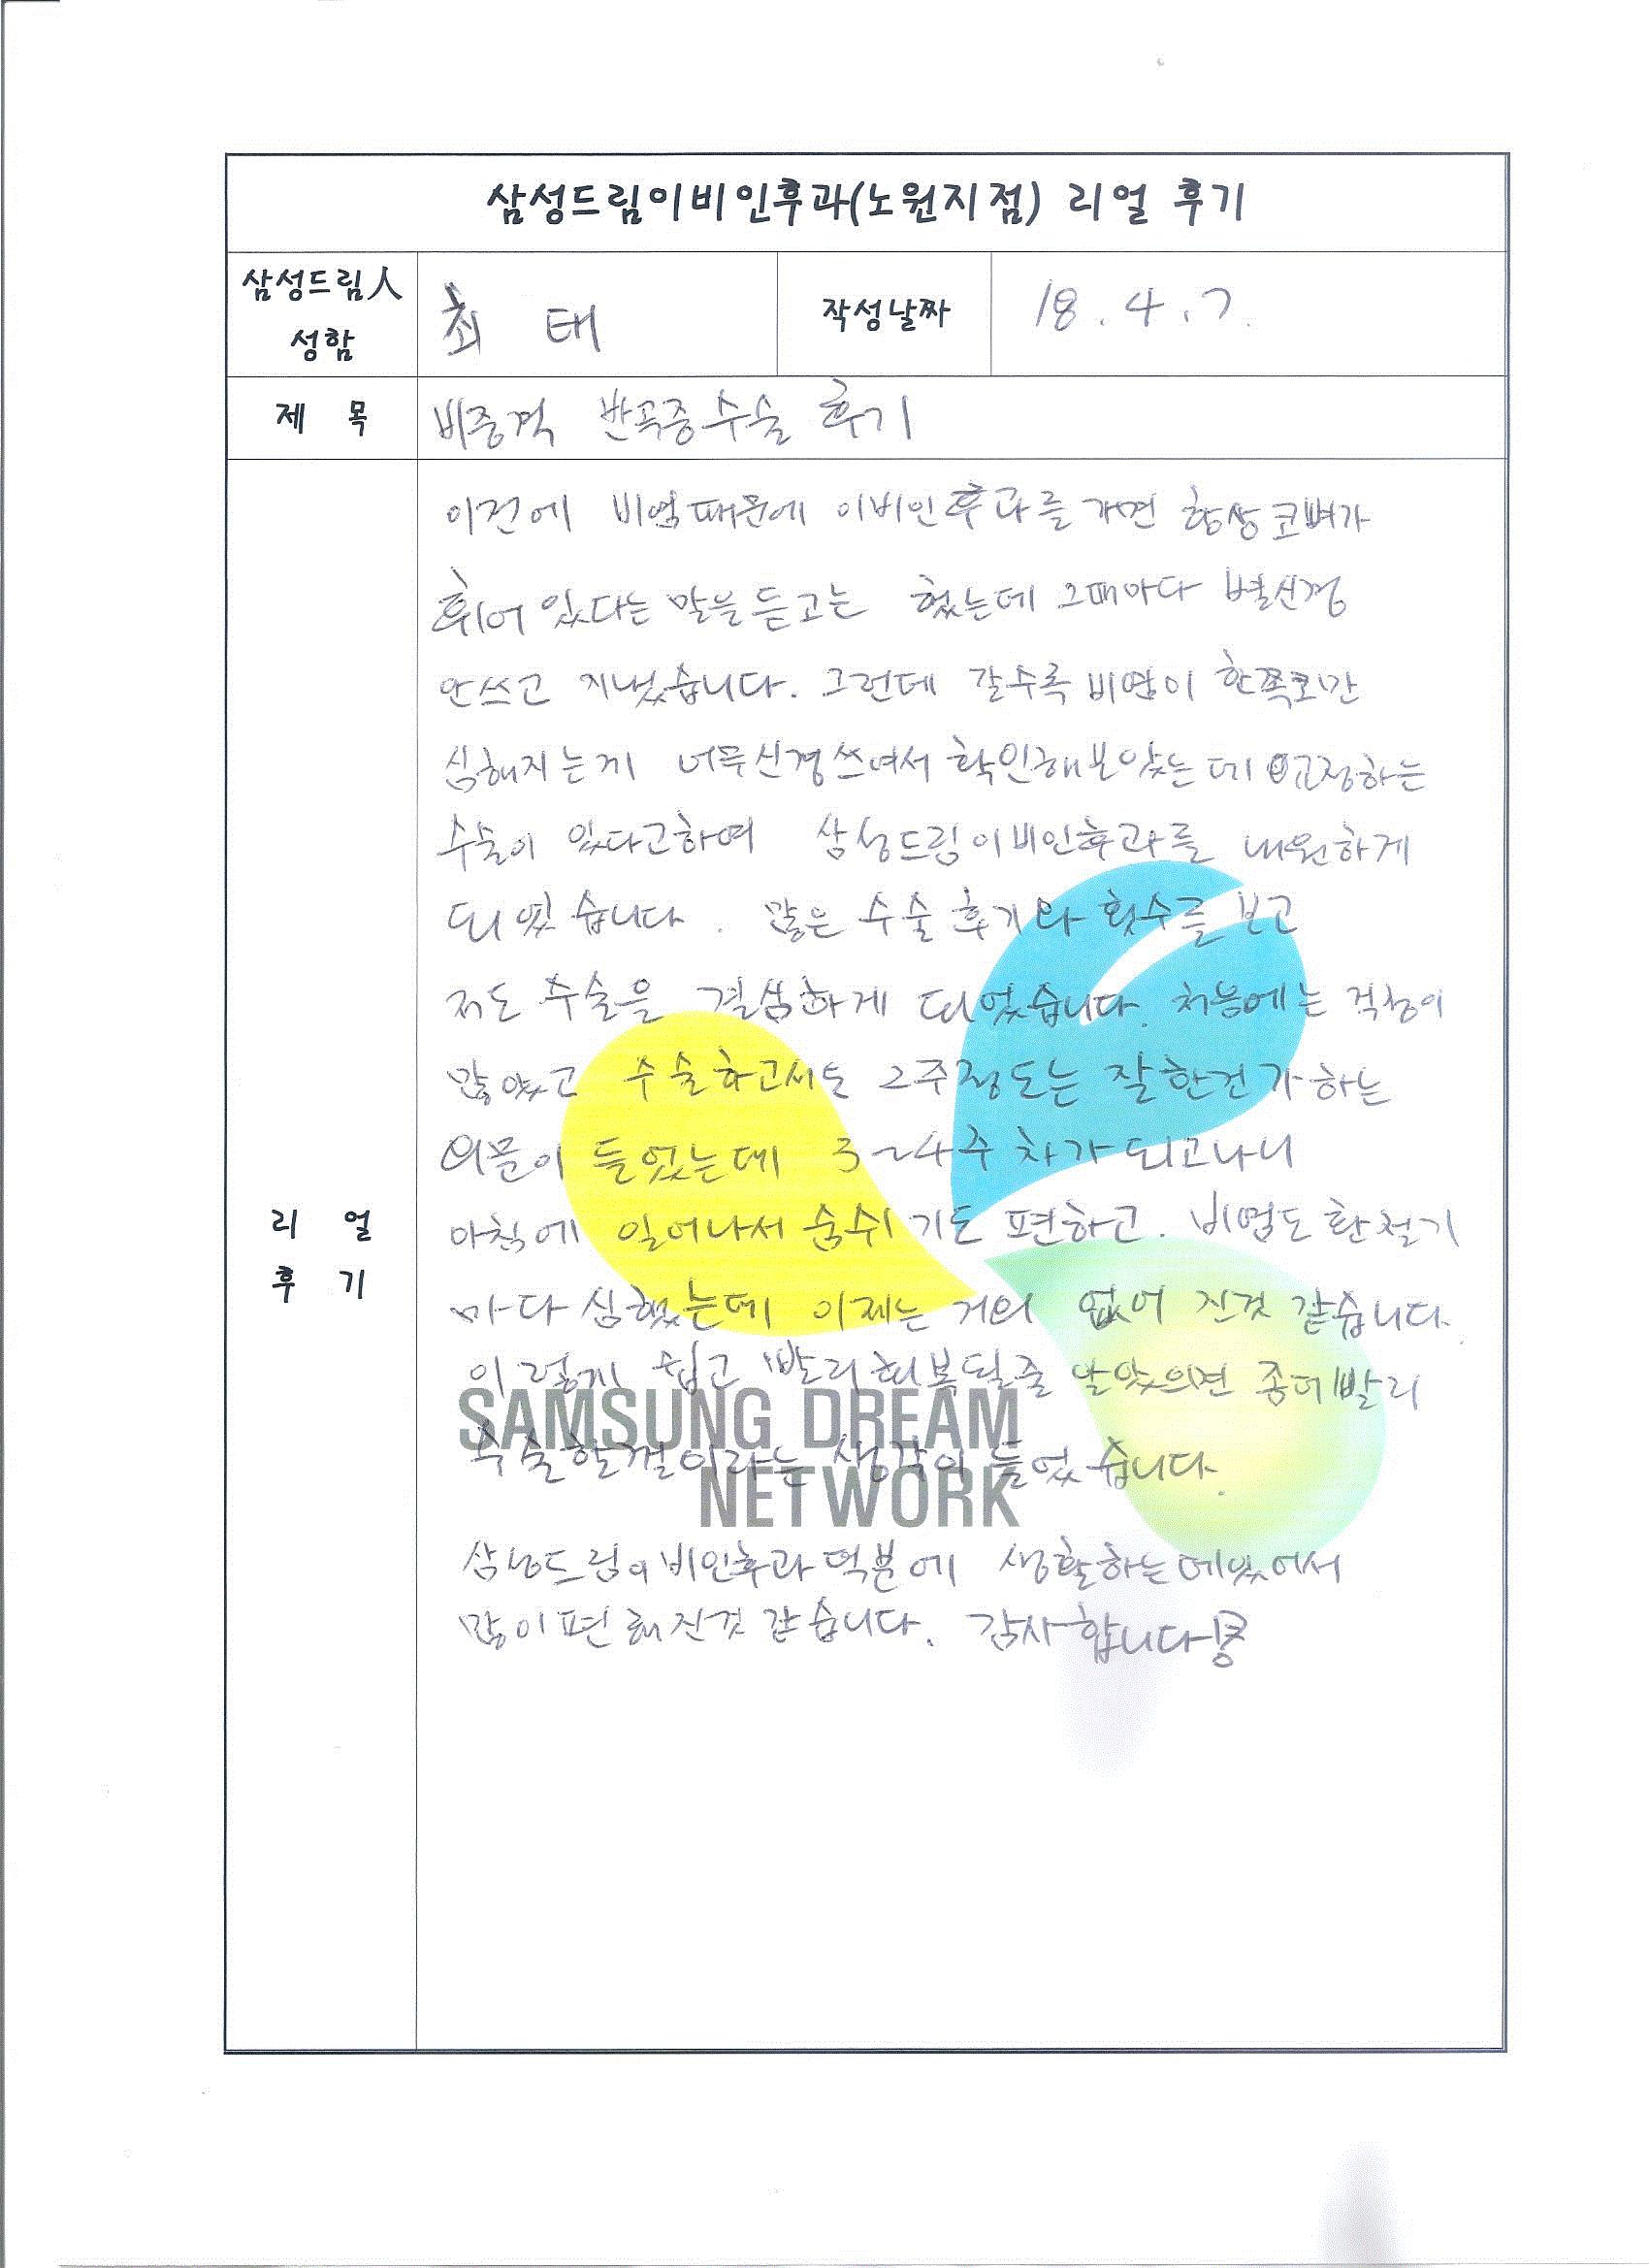 삼성드림이비인후과(노원지점) 리얼 후기
삼성드림人
성함
최 태
작성날짜
18.4.7.
제 목
비중격 반곡증수술 후기
이전에 비염때문에 이비인후과를 가면 항상 코뼈가
휘어 있다는 말을 듣고는 했는데 그때마다 별신경
안쓰고 지냈습니다. 그런데 갈수록 비염이 한쪽코만
심해지는게 너무신경쓰여서 확인해보았는데 교정하는
수술이 있다고하여 삼성드림이비인후과를 내원하게
되었습니다. 많은 수술후기와 횟수를 보고
저도 수술을 결심하게 되었습니다. 처음에는 걱정이
많았고 수술하고서도 2주정도는 잘한건가하는
의문이 들었는데 3~4주 차가 되고나니
리 얼
후 기
아침에 일어나서 숨쉬기도 편하고. 비염도 환절기
마다 심했는데 이제는 거의 없어 진것 같습니다.
이렇게 쉽고 빨리회복될줄 알았으면 좀더빨리
SAMSUNG DREAM
수술할껄이라는 생각이 들었습니다.
NETWORK
삼성드림이비인후과 덕분에 생활하는데있어서
많이편해진것 같습니다. 감사합니다!